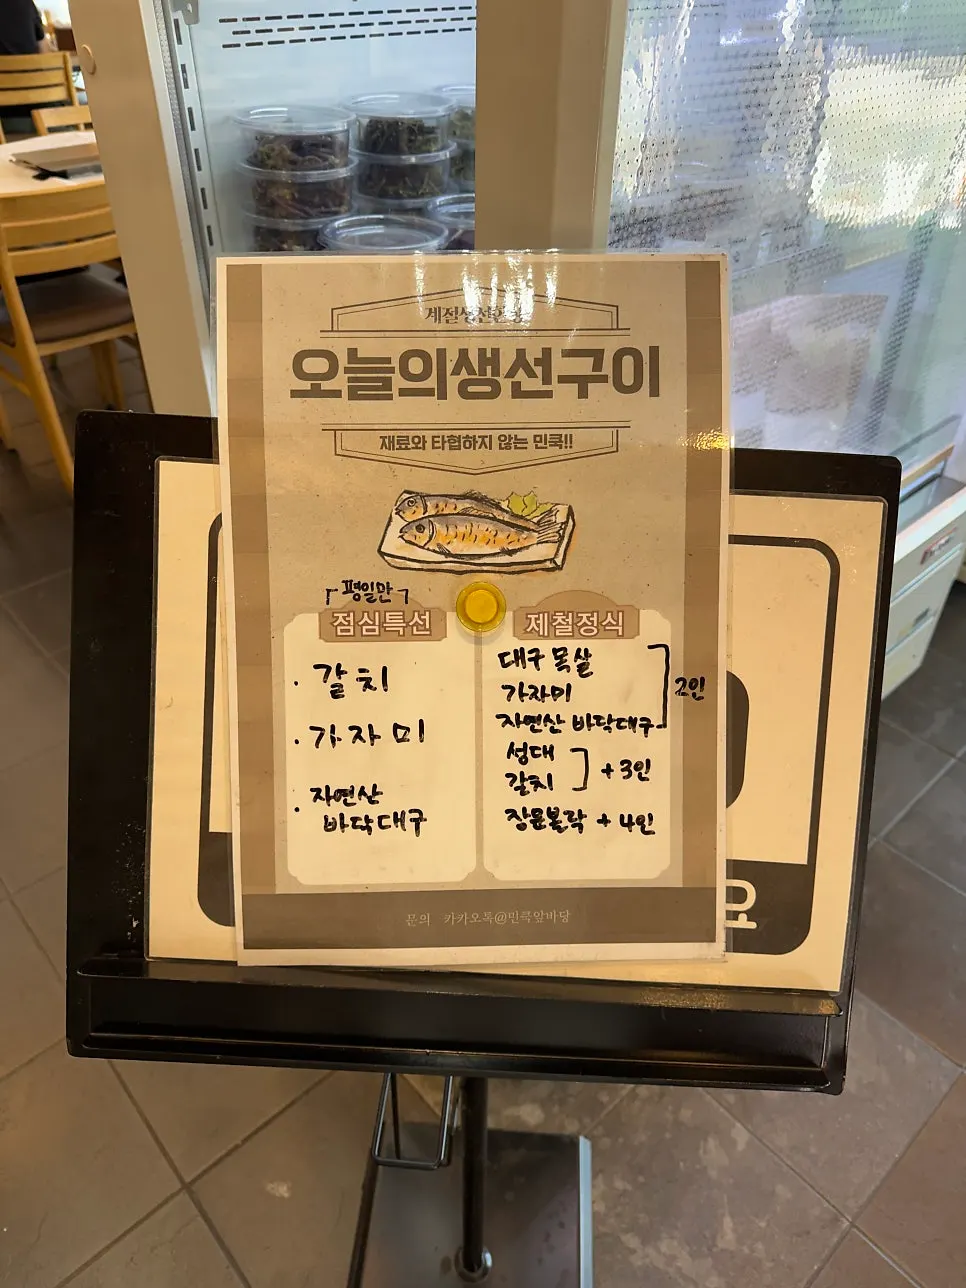 오늘의생선구이
재료와 타협하지 않는 민쿡!!
「평일만」
점심특선
· 갈치
· 가자미
· 자연산
바닥대구
제철정식
대구목살
가자미
자연산 바닥대구
2인
성대
갈치
+3인
장문볼락 +4인
문의 카카오톡@민쿡앞바당
요